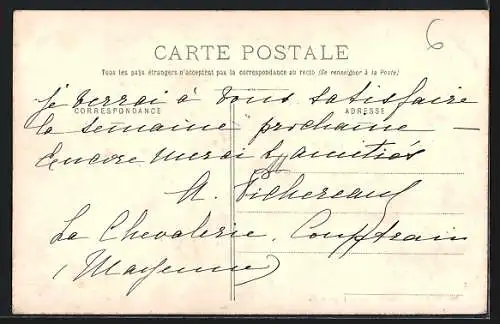 6
CARTE POSTALE
Tous les pays étrangers n'acceptent pas la correspondance au recto (Se renseigner à la Poste)
je verrai à vous satisfaire
CORRESPONDANCE ADRESSE
la semaine prochaine —
Encore merci & amitiés
A. Vichereau
La Chevalerie, Couptrain
(Mayenne)